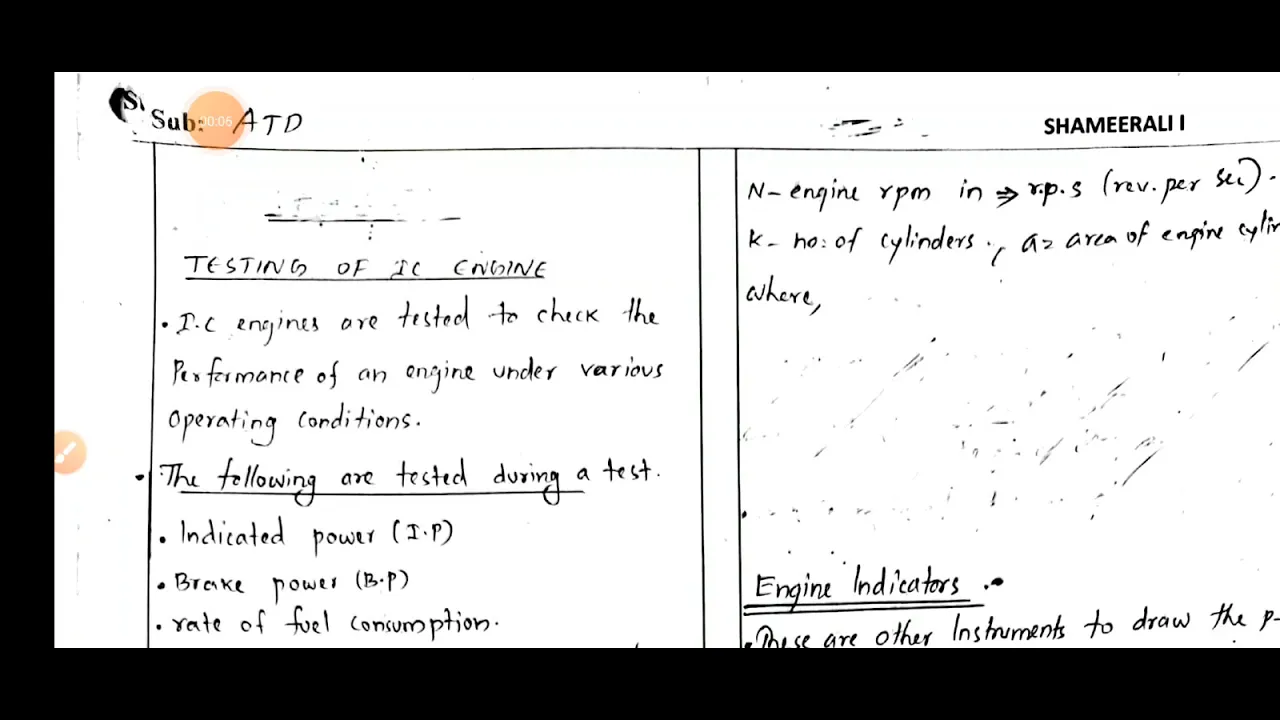 Sub: ATD
00:06
SHAMEERALI I
TESTING OF IC ENGINE
• I.C engines are tested to check the
Performance of an engine under various
Operating Conditions.
• The following are tested during a test.
• Indicated power (I.P)
• Brake power (B.P)
• rate of fuel consumption.
N- engine rpm in ⇒ r.p.s (rev. per sec).
K- no: of cylinders., a= area of engine cylin
where,
Engine Indicators .-
• These are other Instruments to draw the p-